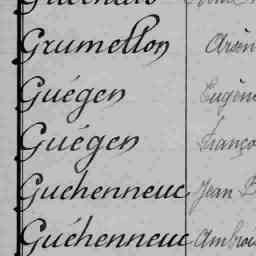 Grumellon Arsèn
Guégen Eugène
Guégen Franço
Guehenneuc Jean B
Guéhenneuc Ambroi